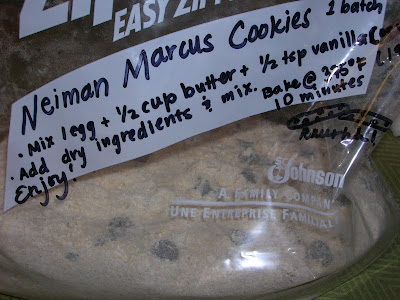 EASY ZIP
Neiman Marcus Cookies 1 batch
• Mix 1 egg + 1/2 cup butter + 1/2 tsp vanilla
• Add dry ingredients & mix. Bake @
10 minutes
Enjoy!
SC Johnson
A FAMILY COMPAN
UNE ENTREPRISE FAMILIAL